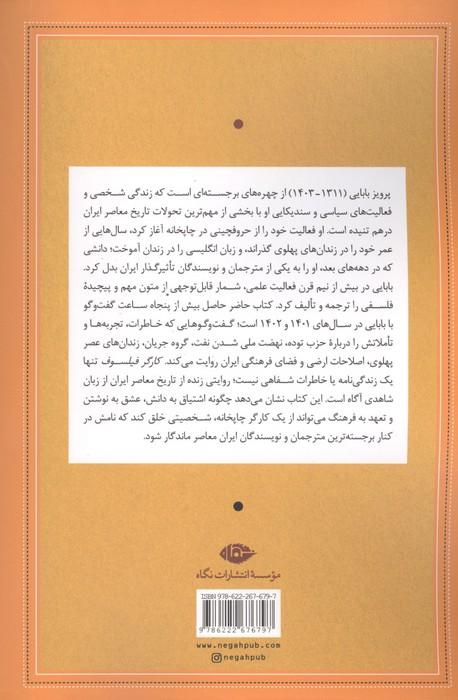 پرویز بابایی (۱۳۱۱-۱۴۰۳) از چهره‌های برجسته‌ای است که زندگی شخصی و
فعالیت‌های سیاسی و سندیکایی او با بخشی از مهم‌ترین تحولات تاریخ معاصر ایران
درهم تنیده است. او فعالیت خود را از حروفچینی در چاپخانه آغاز کرد، سال‌هایی از
عمر خود را در زندان‌های پهلوی گذراند، و زبان انگلیسی را در زندان آموخت؛ دانشی
که در دهه‌های بعد، او را به یکی از مترجمان و نویسندگان تأثیرگذار ایران بدل کرد.
بابایی در بیش از نیم قرن فعالیت علمی، شمار قابل‌توجهی از متون مهم و پیچیدهٔ
فلسفی را ترجمه و تألیف کرد. کتاب حاضر حاصل بیش از پنجاه ساعت گفت‌وگو
با بابایی در سال‌های ۱۴۰۱ و ۱۴۰۲ است؛ گفت‌وگوهایی که خاطرات، تجربه‌ها و
تأملاتش را دربارهٔ حزب توده، نهضت ملی شدن نفت، گروه جریان، زندان‌های عصر
پهلوی، اصلاحات ارضی و فضای فرهنگی ایران روایت می‌کند. کارگر فیلسوف تنها
یک زندگی‌نامه یا خاطرات شفاهی نیست؛ روایتی زنده از تاریخ معاصر ایران از زبان
شاهدی آگاه است. این کتاب نشان می‌دهد چگونه اشتیاق به دانش، عشق به نوشتن
و تعهد به فرهنگ می‌تواند از یک کارگر چاپخانه، شخصیتی خلق کند که نامش در
کنار برجسته‌ترین مترجمان و نویسندگان ایران معاصر ماندگار شود.
مؤسسهٔ انتشارات نگاه
ISBN 978-622-267-679-7
9 786222 676797
www.negahpub.com
negahpub